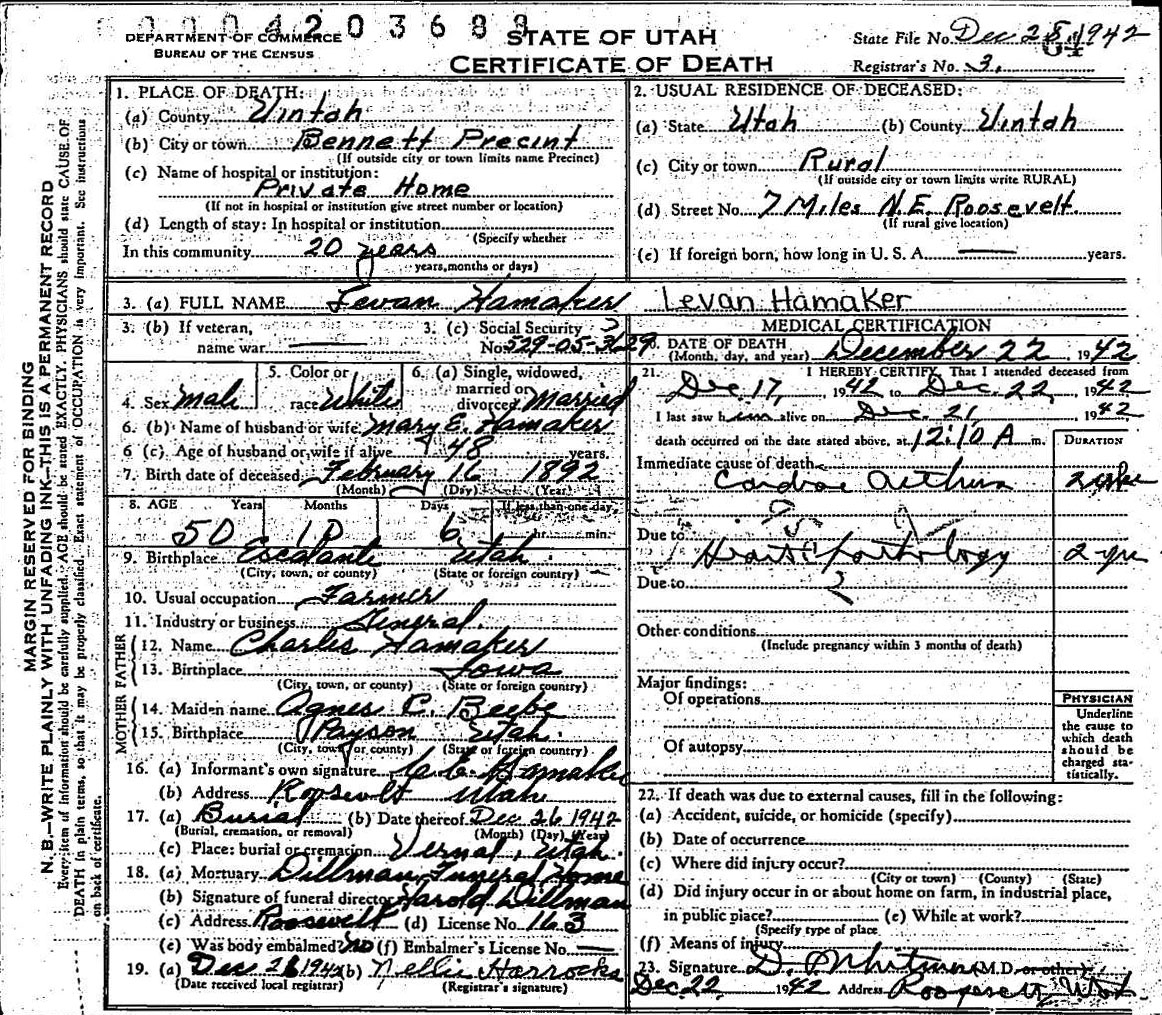 0004203688
DEPARTMENT OF COMMERCE
BUREAU OF THE CENSUS
STATE OF UTAH
CERTIFICATE OF DEATH
State File No. Dec 28, 1942
Registrar's No. 3.
MARGIN RESERVED FOR BINDING
N. B.—WRITE PLAINLY WITH UNFADING INK—THIS IS A PERMANENT RECORD
Every item of information should be carefully supplied. AGE should be stated EXACTLY. PHYSICIANS should state CAUSE OF
DEATH in plain terms, so that it may be properly classified. Exact statement of OCCUPATION is very important. See instructions
on back of certificate.
1. PLACE OF DEATH:
(a) County Uintah
(b) City or town Bennett Precint
(If outside city or town limits name Precinct)
(c) Name of hospital or institution:
Private Home
(If not in hospital or institution give street number or location)
(d) Length of stay: In hospital or institution
(Specify whether
In this community 20 years
years, months or days)
2. USUAL RESIDENCE OF DECEASED:
(a) State Utah (b) County Uintah
(c) City or town Rural
(If outside city or town limits write RURAL)
(d) Street No. 7 Miles N.E. Roosevelt.
(If rural give location)
(e) If foreign born, how long in U. S. A. — years.
3. (a) FULL NAME Levan Hamaker Levan Hamaker
3. (b) If veteran,
name war —
3. (c) Social Security
No. 529-05-3629
4. Sex Male
5. Color or
race White
6. (a) Single, widowed,
married or
divorced Married
6. (b) Name of husband or wife Mary E. Hamaker
6 (c). Age of husband or wife if alive 48 years.
7. Birth date of deceased February 16 1892
(Month) (Day) (Year)
8. AGE Years Months Days If less than one day
50 10 6 hr. min.
9. Birthplace Escalante Utah
(City, town, or county) (State or foreign country)
10. Usual occupation Farmer
11. Industry or business General.
FATHER
12. Name Charlie Hamaker
13. Birthplace Iowa
(City, town, or county) (State or foreign country)
MOTHER
14. Maiden name Agnes C. Beebe
15. Birthplace Payson Utah.
(City, town, or county) (State or foreign country)
16. (a) Informant's own signature Hamaker
(b) Address Roosevelt Utah
17. (a) Burial (b) Date thereof Dec 26 1942
(Burial, cremation, or removal) (Month) (Day) (Year)
(c) Place: burial or cremation Vernal, Utah.
18. (a) Mortuary Dillman Funeral Home
(b) Signature of funeral director Harold Dillman
(c) Address Roosevelt (d) License No. 163
(e) Was body embalmed? no (f) Embalmer's License No. —
19. (a) Dec 26 1942 (b) Nellie Harrocks
(Date received local registrar) (Registrar's signature)
MEDICAL CERTIFICATION
DATE OF DEATH
(Month, day, and year) December 22, 1942
21. I HEREBY CERTIFY, That I attended deceased from
Dec 17, 1942 to Dec. 22, 1942
I last saw him alive on Dec. 21, 1942
death occurred on the date stated above, at 12:10 A m.
DURATION
Immediate cause of death
Cardiac 2 wks
Due to
Heart pathology 2 yrs
Due to
Other conditions
(Include pregnancy within 3 months of death)
Major findings:
Of operations
Of autopsy
PHYSICIAN
Underline
the cause to
which death
should be
charged sta-
tistically.
22. If death was due to external causes, fill in the following:
(a) Accident, suicide, or homicide (specify)
(b) Date of occurrence
(c) Where did injury occur?
(City or town) (County) (State)
(d) Did injury occur in or about home on farm, in industrial place,
in public place? (e) While at work?
(Specify type of place
(f) Means of injury
23. Signature (M.D. or other)
Dec. 22 1942 Address Roosevelt, Utah